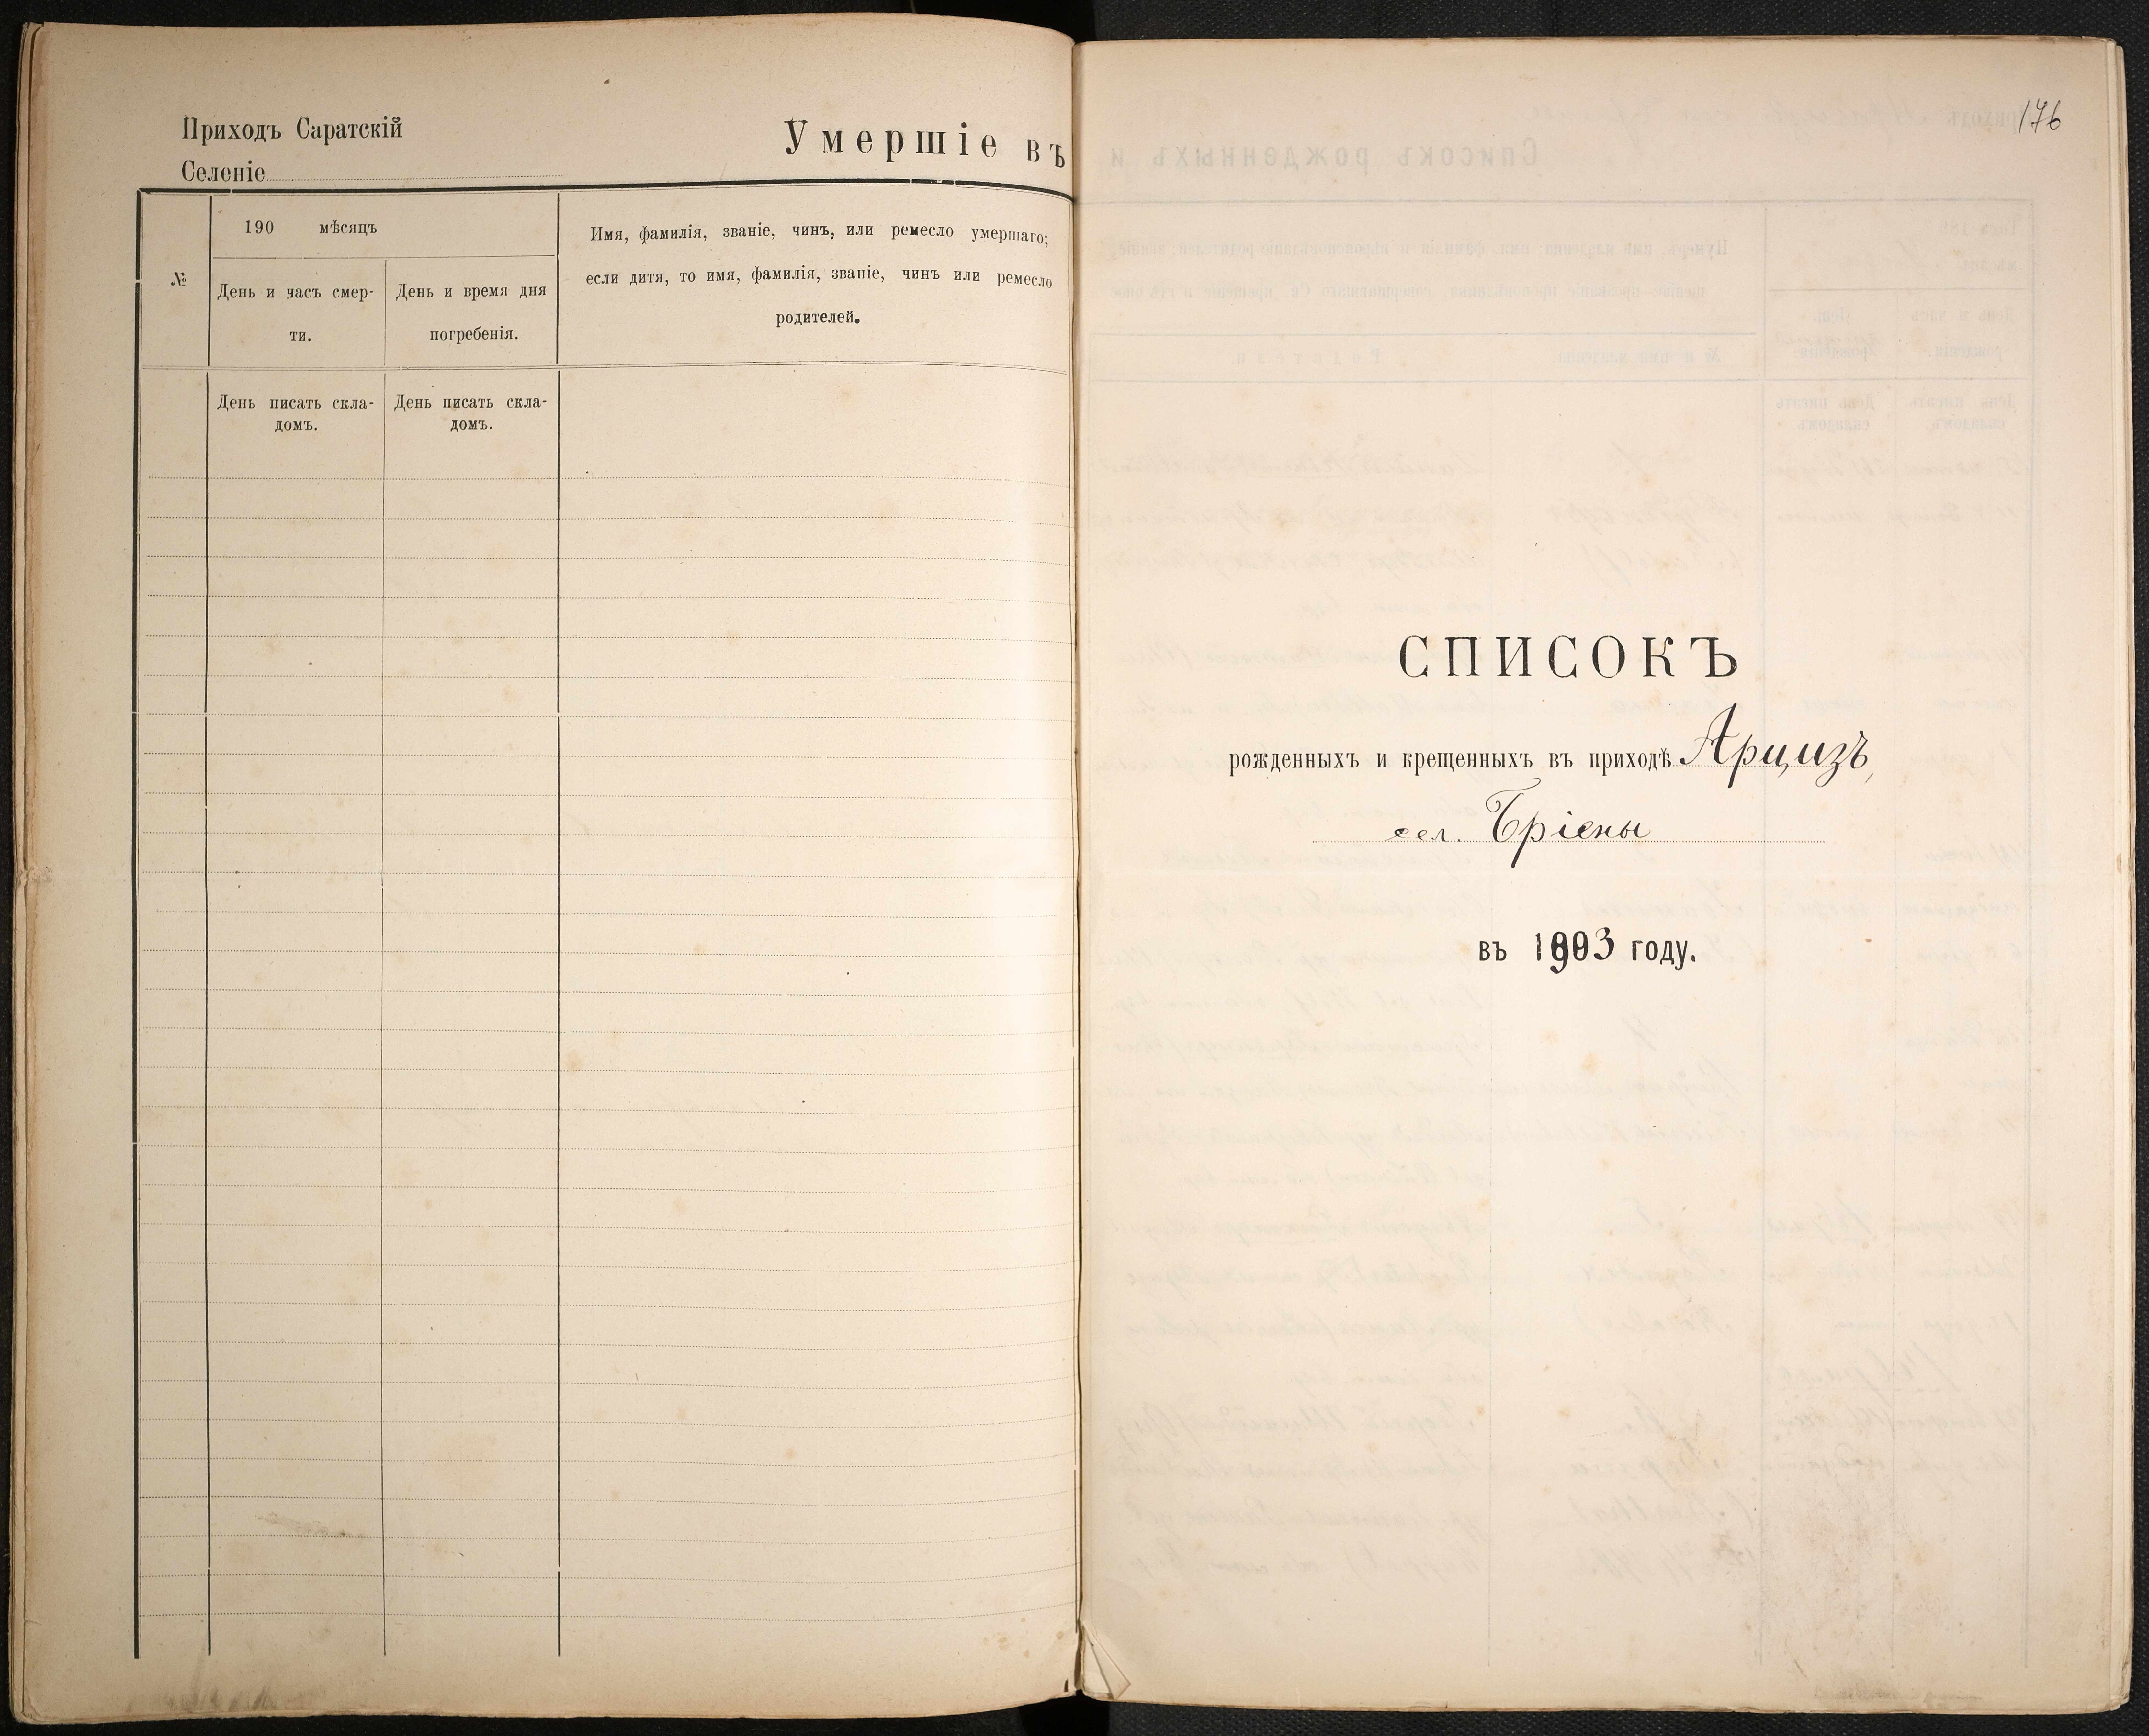 Приходъ Саратскій
Селеніе
Умершіе въ
№
190 мѣсяцъ
День и часъ смер-
ти.
День и время дня
погребенія.
Имя, фамилія, званіе, чинъ, или ремесло умершаго;
если дитя, то имя, фамилія, званіе, чинъ или ремесло
родителей.
День писать скла-
домъ.
День писать скла-
домъ.
176
СПИСОКЪ
рожденныхъ и крещенныхъ въ приходѣ Арцизъ,
сел. Бріены
въ 1903 году.